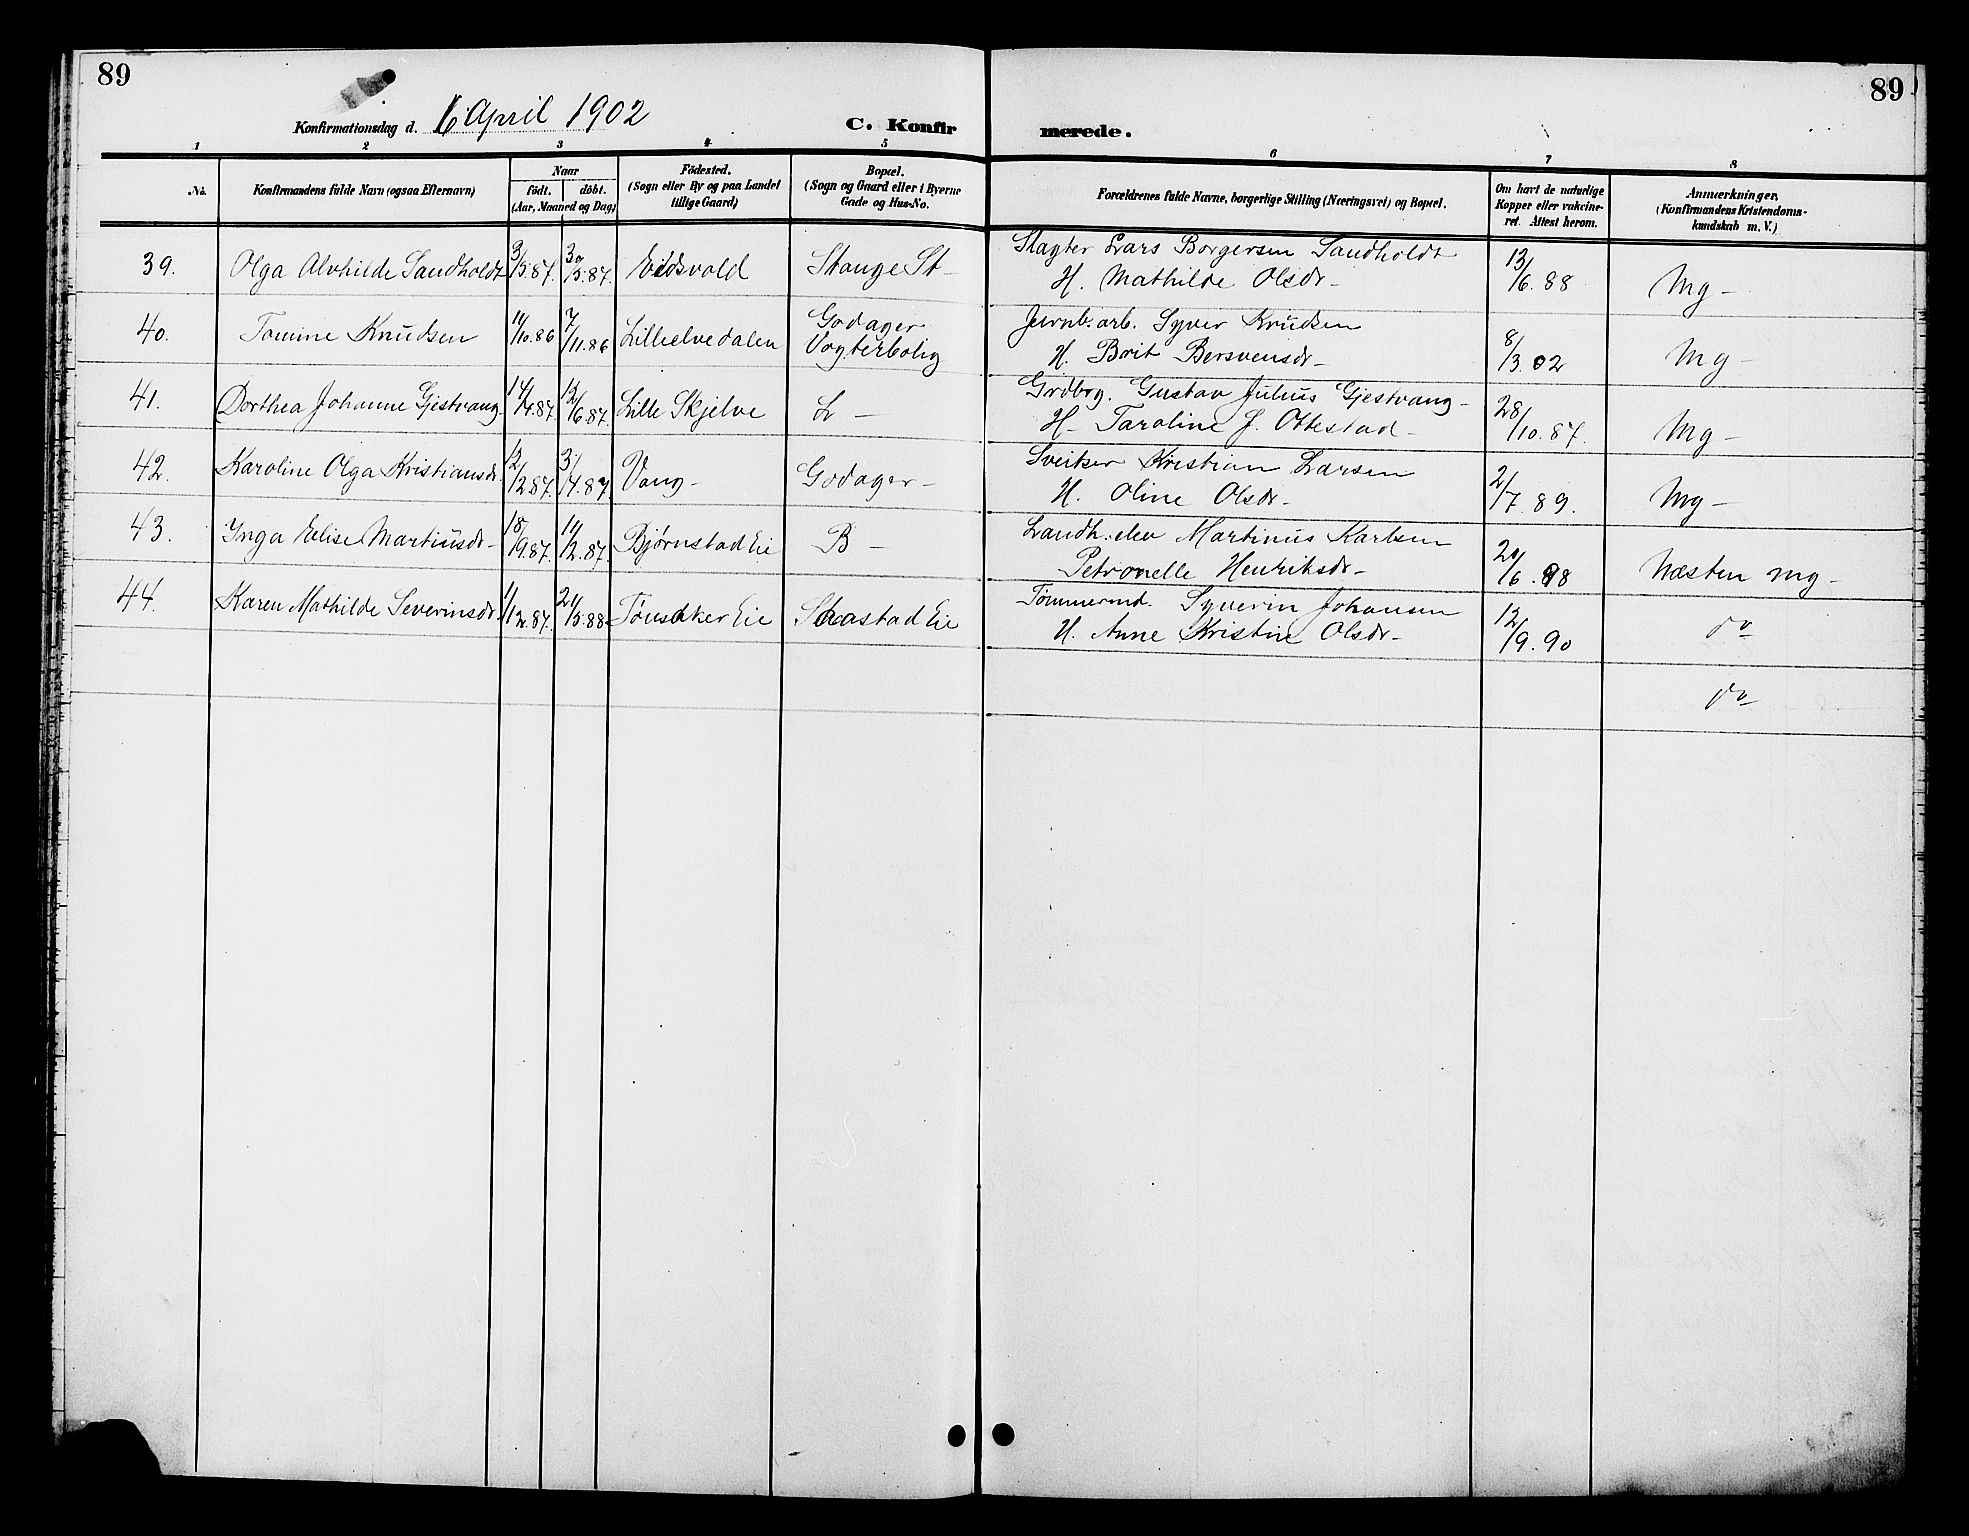 89
89
Konfirmationsdag d. 6 April 1902
C. Konfirmerede.
1 2 3 4 5 6 7 8
No.
Konfirmandens fulde Navn (ogsaa Efternavn)
Naar
födt. döbt.
(Aar, Maaned og Dag)
Födested.
(Sogn eller By og paa Landet
tillige Gaard)
Bopæl.
(Sogn og Gaard eller i Byerne
Gade og Hus-No.
Forældrenes fulde Navne, borgerlige Stilling (Næringsvei) og Bopæl.
Om havt de naturlige
Kopper eller vakcine-
ret. Attest herom.
Anmærkninger,
(Konfirmandens Kristendoms-
kundskab m. V.)
39. Olga Alvhilde Sandholdt 3/5.87. 30/5.87. Eidsvold Stange St- Slagter Lars Borgersen Sandholdt
H. Mathilde Olsdr- 13/6.88 Mg-
40. Tomine Knudsen 11/10.86 7/11.86 Lilleelvedalen Godager
Vogterbolig
Jernb.arb. Syver Knudsen
H. Brit Bersvensdr- 8/3.02 Mg-
41. Dorthea Johanne Gjestvang- 14/4.87. 12/6.87. Lille Skjelve L- Grdbrg. Gustav Julius Gjestvang-
H. Taroline J. Ottestad- 28/10.87. Mg-
42. Karoline Olga Kristiansdr. 12/2.87. 3/4.87 Vang- Godager- Sveitser Kristian Larsen
H. Oline Olsdr- 2/7 89. Mg-
43. Inga Elise Martinusdr- 18/9.87. 11/12.87. Bjørnstad Eie B- Landh.elev Martinus Karlsen
Petronelle Henriksdr- 20/6.98 Næsten mg-
44. Karen Mathilde Severinsdr. 1/12.87. 21/5.88 Tønsaker Eie Saastad Eie Tømmermd. Syverin Johansen
H. Anne Kristine Olsdr- 12/9.90 do
do